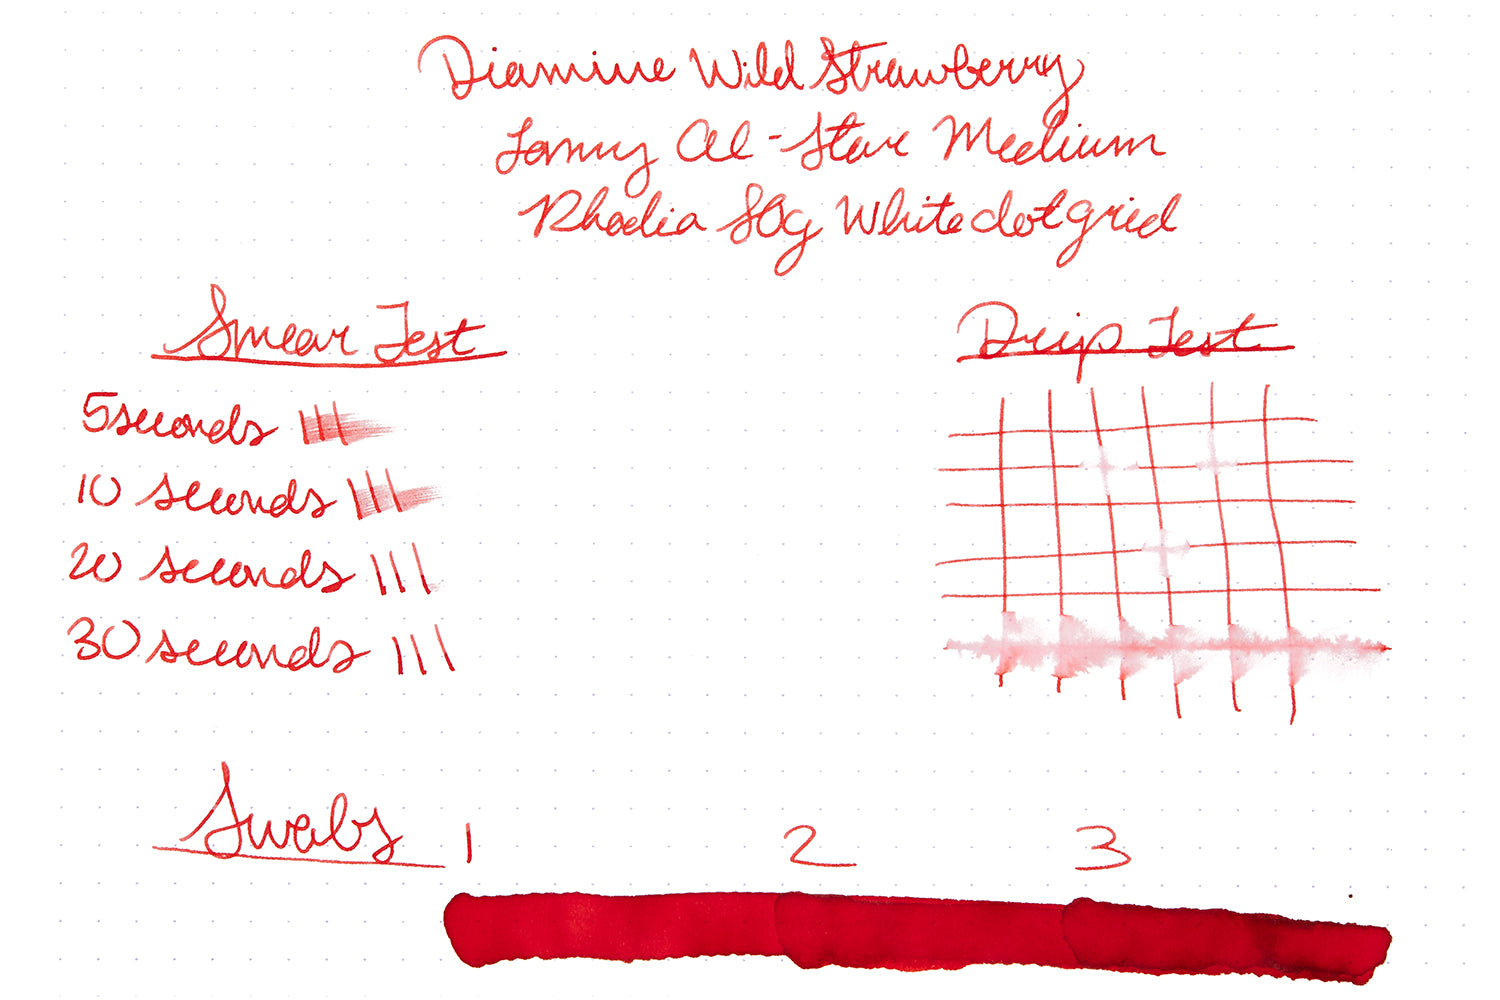 Diamine Wild Strawberry
Lamy Al-Star Medium
Rhodia 80g White dot grid
Smear Test
Drip Test
5 seconds
10 seconds
20 seconds
30 seconds
Swabs
1 2 3